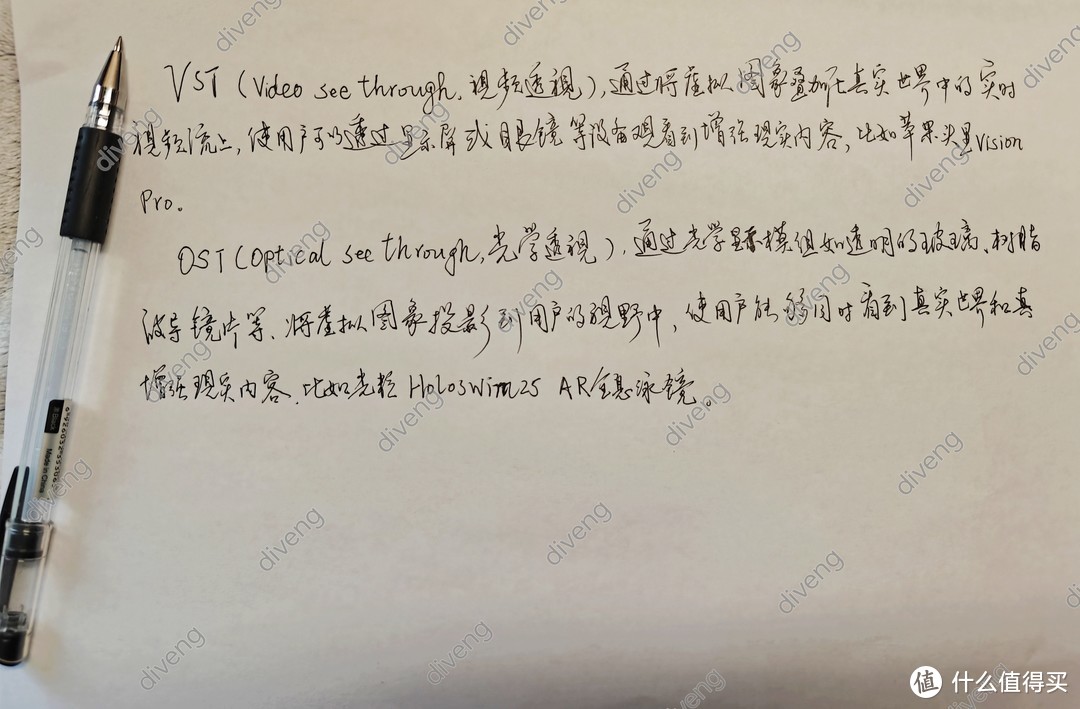 VST（Video see through，视频透视），通过将虚拟图象叠加在真实世界中的实时
视频流上，使用户可以透过显示屏或眼镜等设备观看到增强现实内容，比如苹果头显Vision
Pro。
OST（Optical see through，光学透视），通过光学显示模组如透明的玻璃、树脂
波导镜片等、将虚拟图象投影到用户的视野中，使用户能够同时看到真实世界和其
增强现实内容，比如光粒 Holoswim2S AR全息泳镜。
值 什么值得买
diveng
Made in China